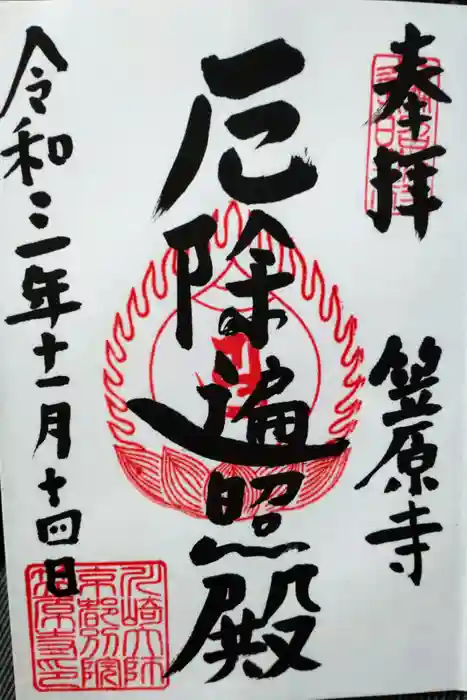 奉拝
笠原寺
厄除遍照殿
令和三年十一月十四日
川崎大師
京都別院
笠原寺印